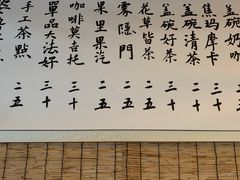 蓋碗奶
三十
焦瑪摩卡
三十
蓋碗清茶
二十
蓋碗好茶
三十
花草皆茶
二五
雾隐門
二五
果里果汽
二五
咖啡莫吉托
三十
單品大法好
三十
手工茶點
二五